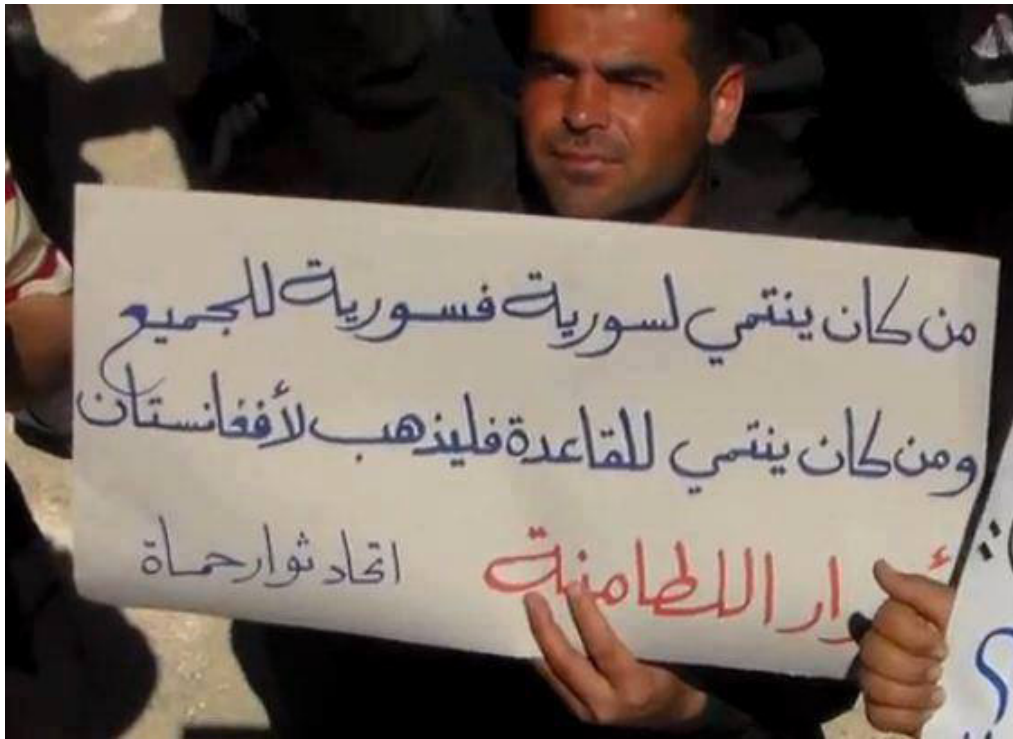 من كان ينتمي لسورية فسورية للجميع
ومن كان ينتمي للقاعدة فليذهب لأفغانستان
اللطامنة
اتحاد ثوار حماة
؟